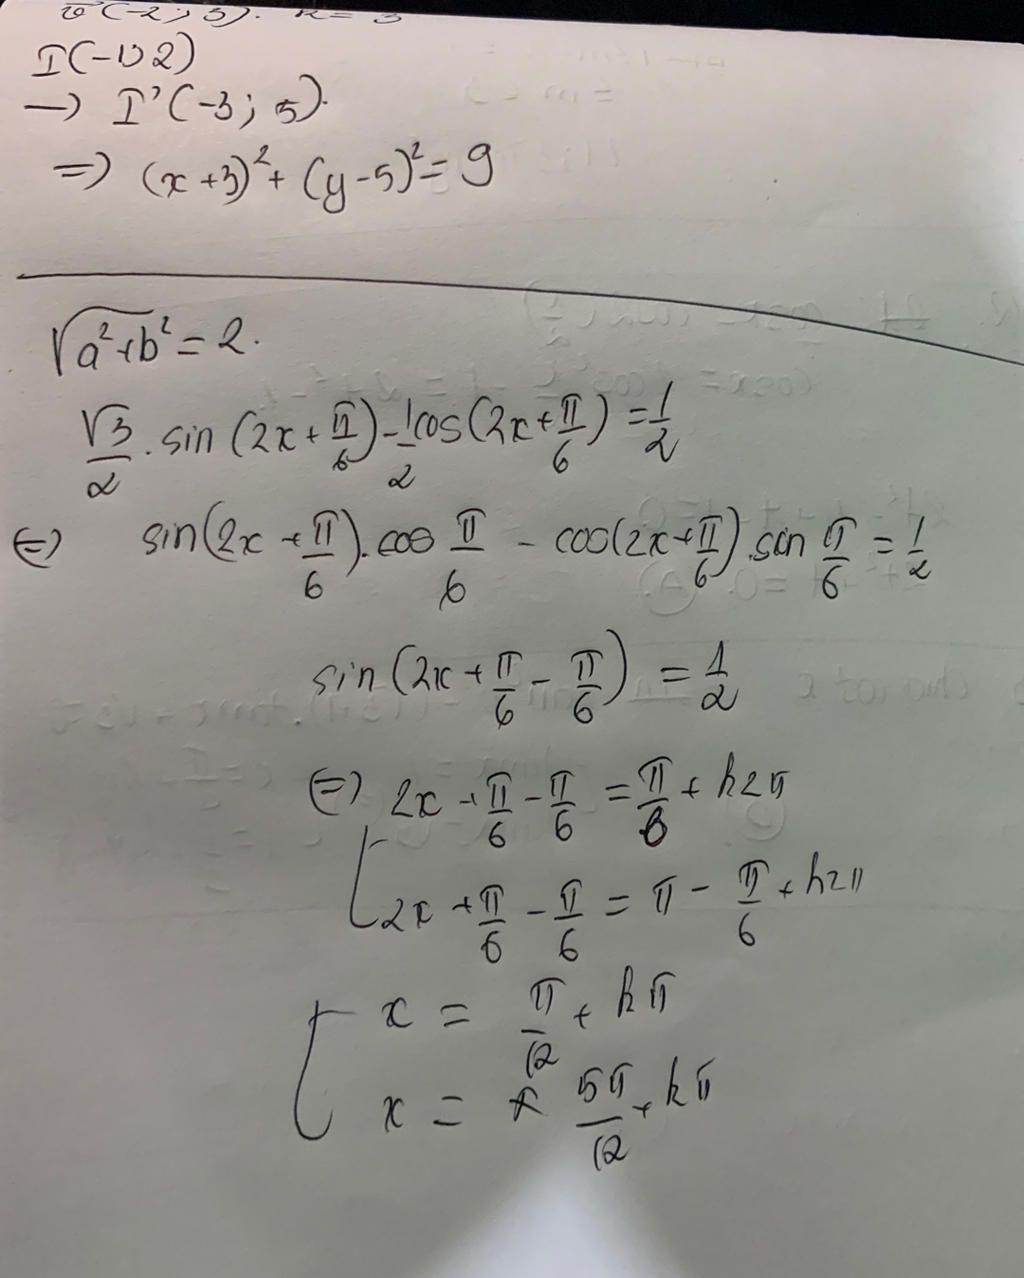 v (-2; 3). R = 3
I(-1; 2)
→ I'(-3; 5).
⇒ (x+3)² + (y-5)² = 9
√a²+b² = 2.
√3/2 . sin (2x + π/6) - 1/2 cos (2x + π/6) = 1/2
⇔ sin(2x + π/6). cos π/6 - cos(2x + π/6). sin π/6 = 1/2
sin (2x + π/6 - π/6) = 1/2
⇔ 2x + π/6 - π/6 = π/6 + k2π
2x + π/6 - π/6 = π - π/6 + k2π
x = π/12 + kπ
x = 5π/12 + kπ